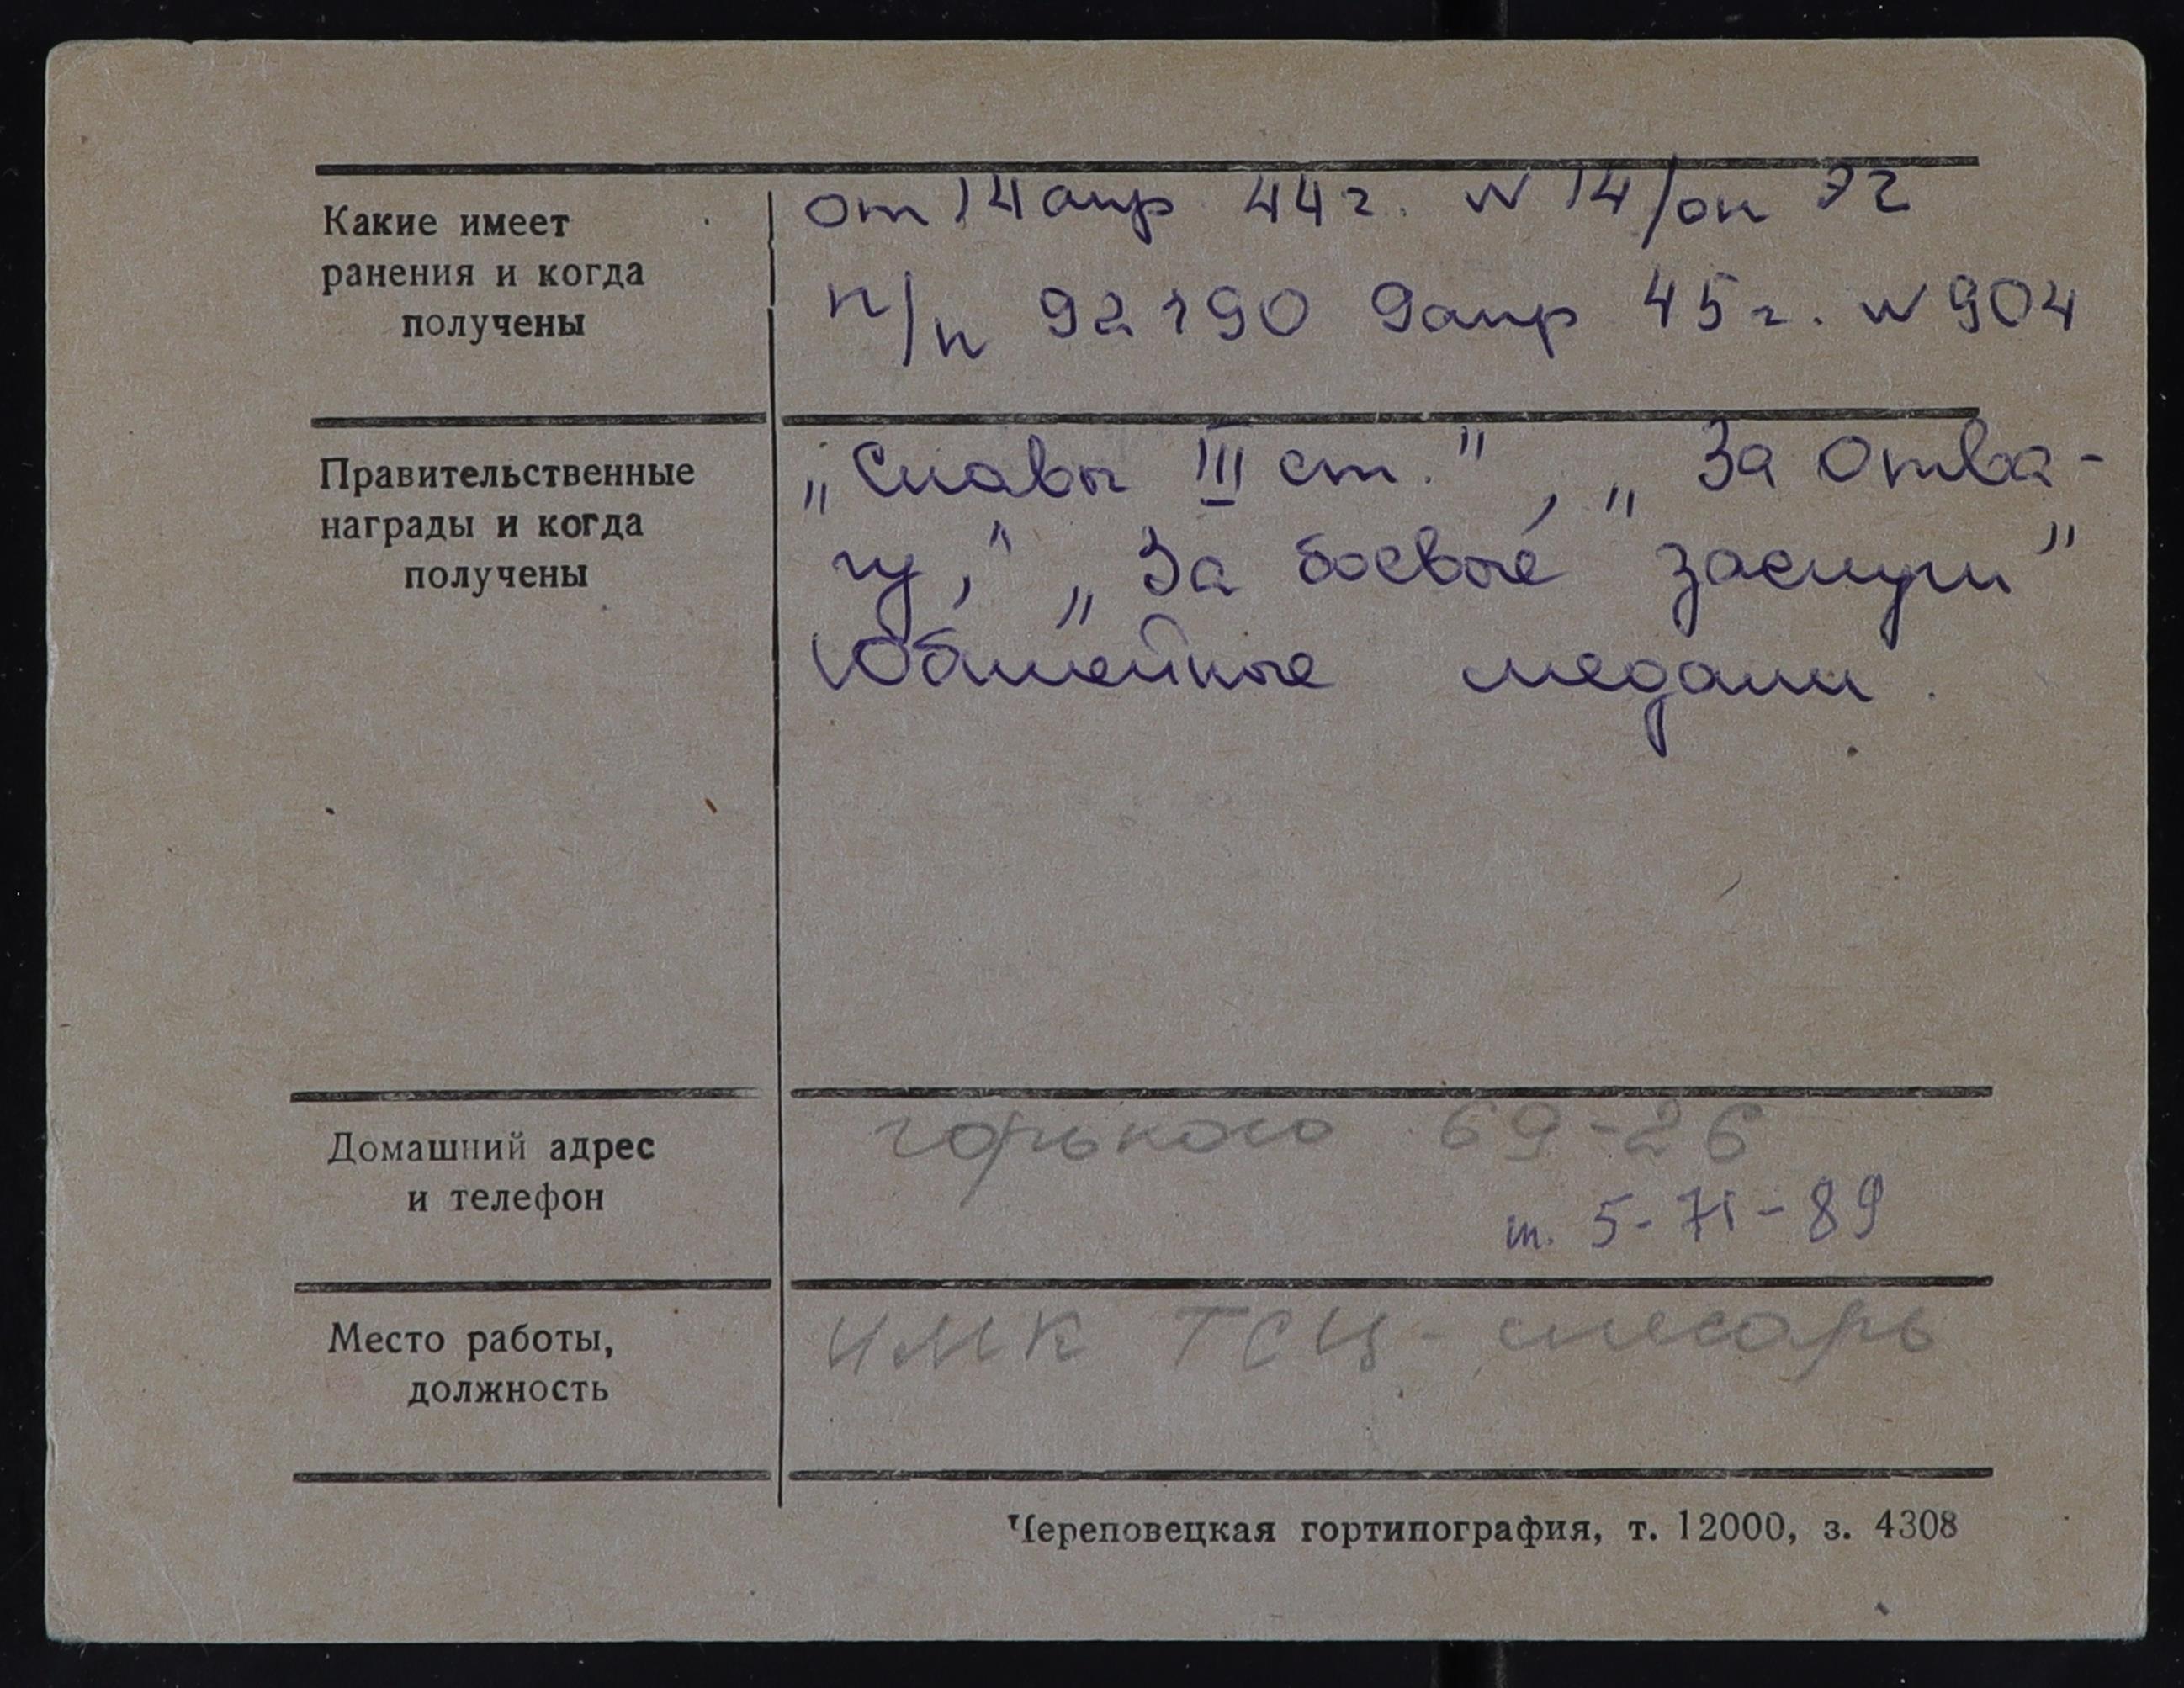 Какие имеет
ранения и когда
получены
от 14 апр 44 г. N 14/он ЭГ
п/п 92190 9 апр 45 г. N 904
Правительственные
награды и когда
получены
„Славы III ст.", „За Отва-
гу," „За боевые заслуги"
Юбилейные медали.
Домашний адрес
и телефон
горького 69-26
т. 5-71-89
Место работы,
должность
ЧМК ТСЦ - слесарь
Череповецкая гортипография, т. 12000, з. 4308